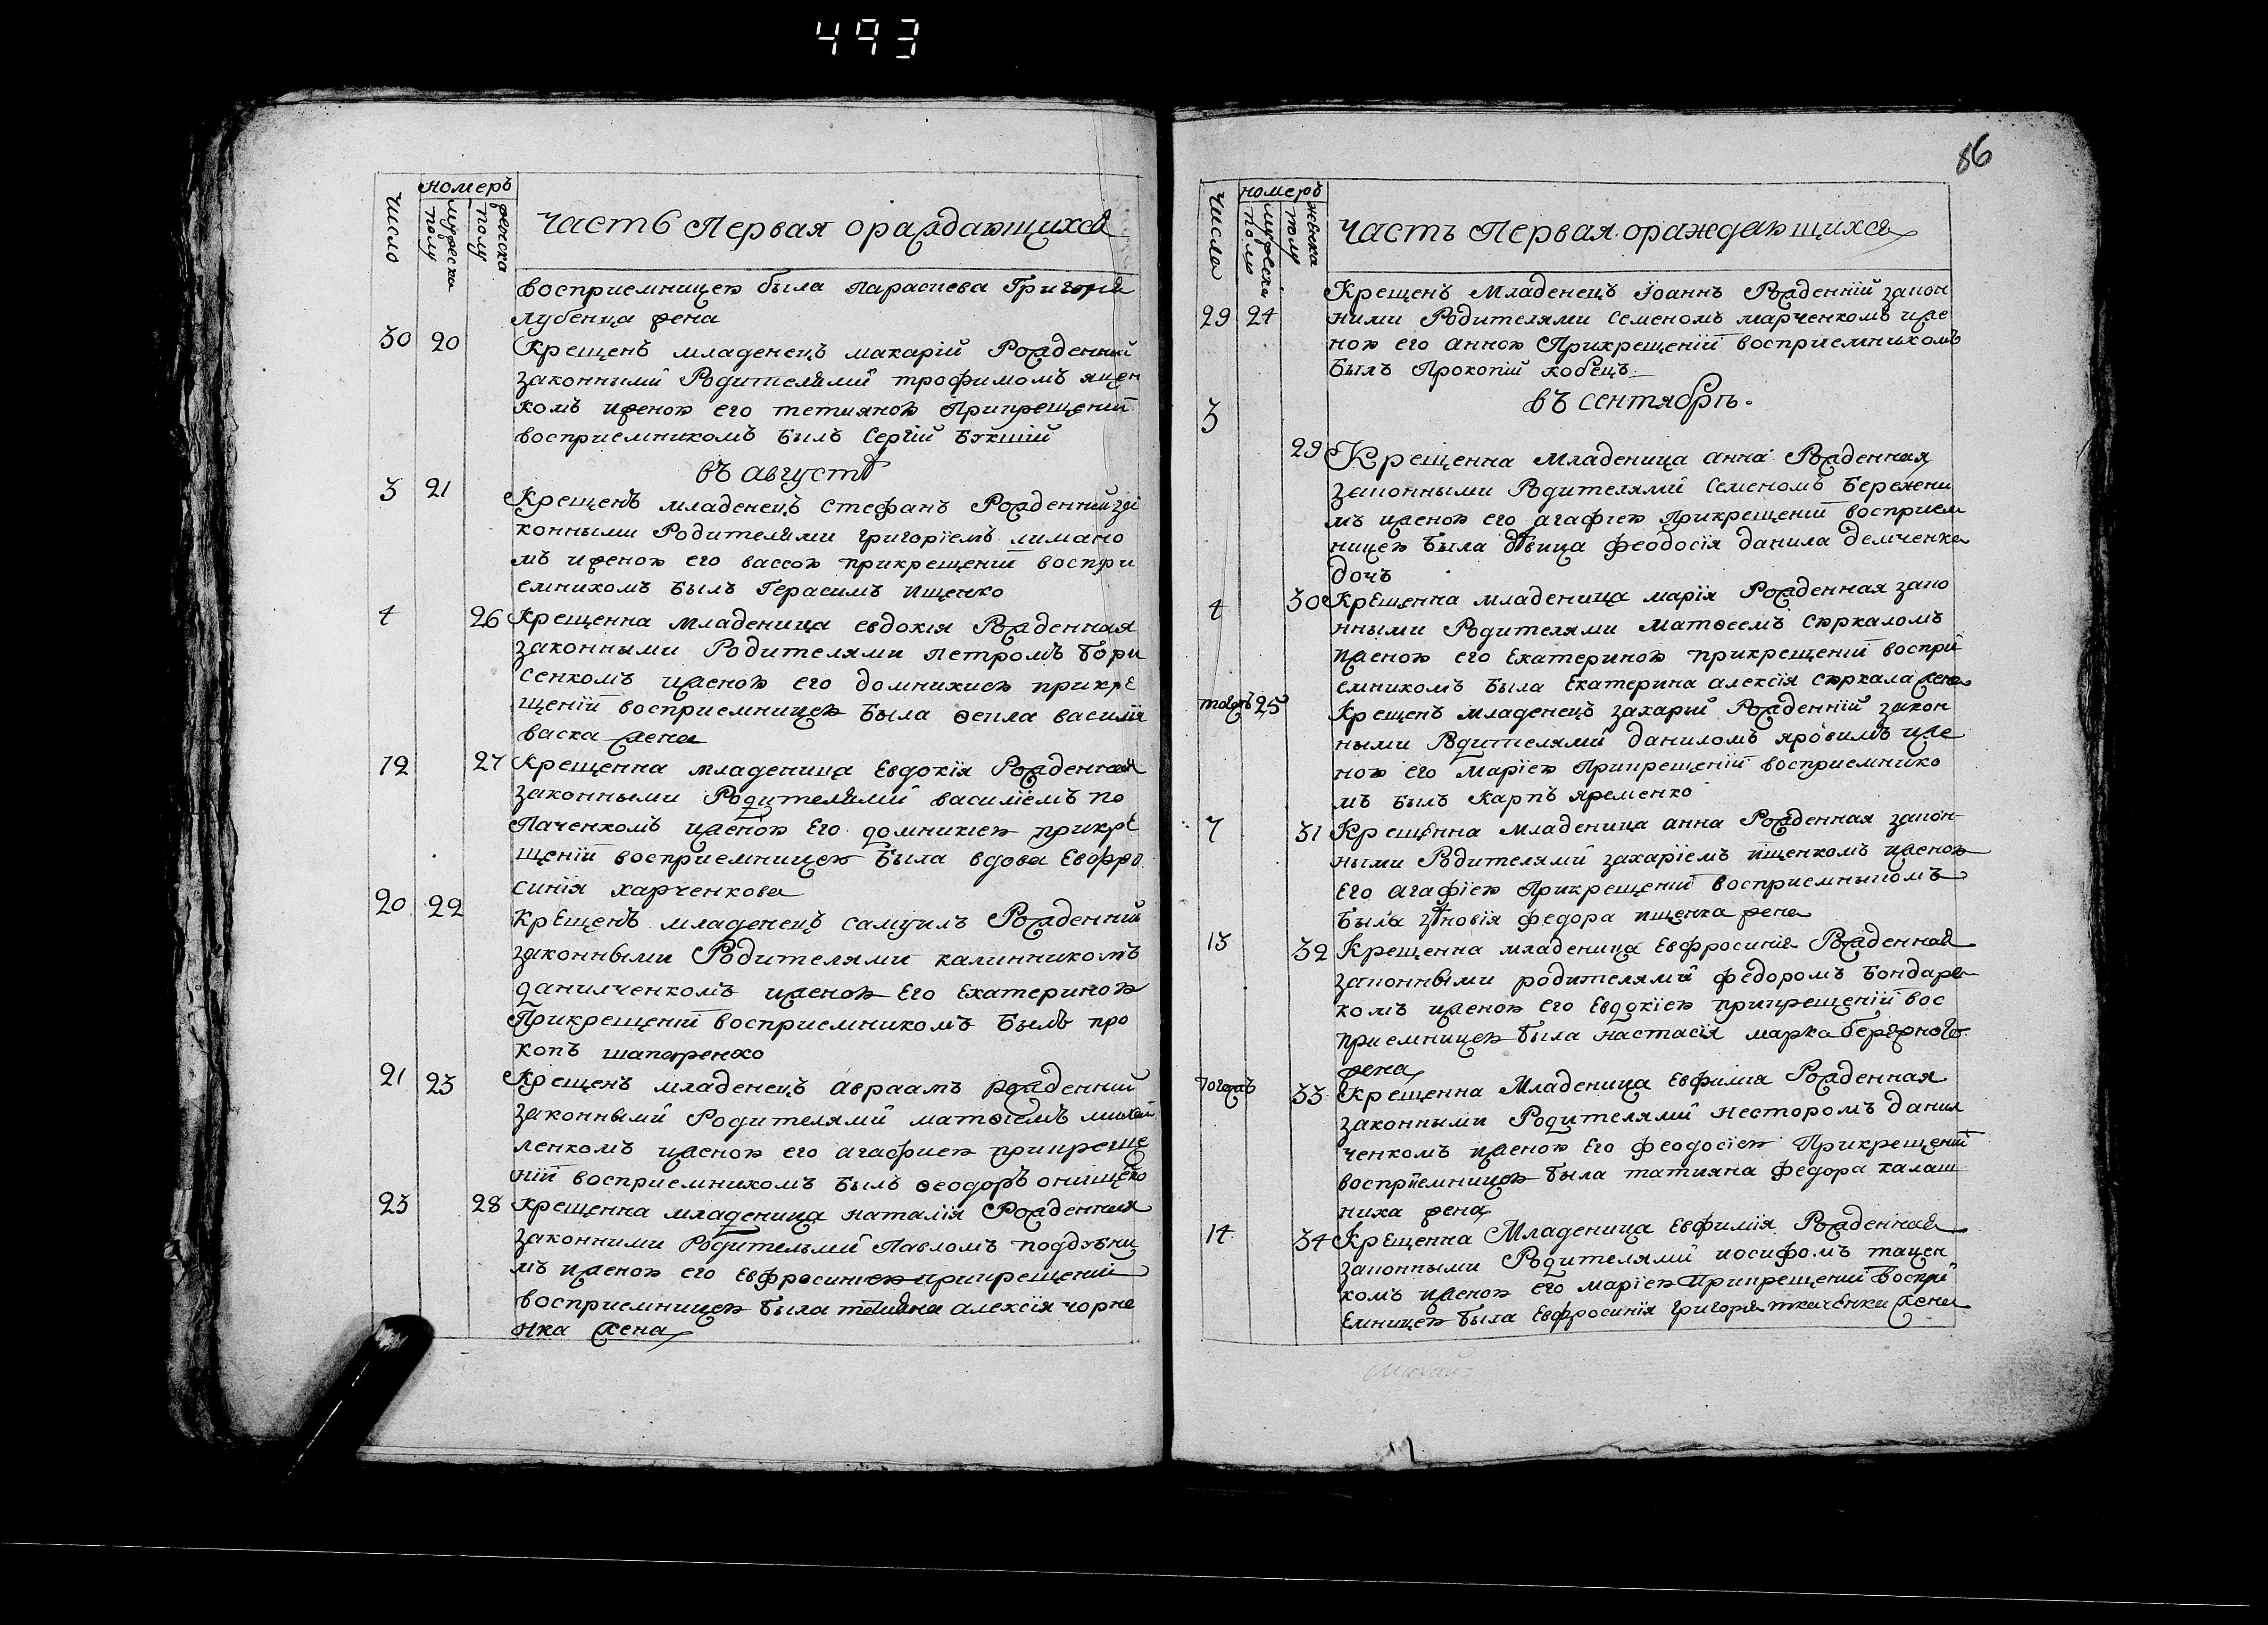 493
номеръ
число
мужеска полу
женска полу
часть Первая ораждающихся
восприемницею была Параскева Григорія
лубенца жена
30 20 Крещенъ младенецъ макарій Рожденний
законными Родителями трофимомъ яцен
комъ иженою его тетияною Прикрещеніи
восприемникомъ былъ Сергій Букшій
въ августѣ
3 21 Крещенъ младенецъ Стефанъ Рожденний за
конными Родителями григоріемъ лимано
мъ иженою его вассою прикрещеніи воспри
емникомъ былъ Герасимъ ищенко
4 26 Крещенна младеница евдокія Рожденная
законными Родителями петромъ бори
сенкомъ иженою его домникиею прикре
щеніи восприемницею была Ѳекла василія
васка жена
12 27 Крещенна младеница Евдокія Рожденная
законными Родителями василіемъ по
паченкомъ иженою Его домникіею прикре
щеніи восприемницею была вдова Евфро
синія харченкова
20 22 Крещенъ младенецъ Самуилъ Рожденний
законными Родителями калинникомъ
данилченкомъ иженою Его Екатериною
Прикрещеніи восприемникомъ былъ про
копъ шапаренко
21 23 Крещенъ младенецъ авраамъ рожденний
законными Родителями матѳіемъ михай
ленкомъ иженою его агафиею прикреще
ніи восприемникомъ былъ Ѳеодоръ онищенко
23 28 Крещенна младеница наталія Рожденная
законними Родительми Павломъ
мъ иженою его Евфросиниею прикрещеніи
восприемницею была татияна алексія чорне
нка жена
86
номеръ
числа
мужеска полу
женска полу
Часть Первая ораждающихся
Крещенъ Младенецъ Іоаннъ Рожденній закон
29 24 ними Родителями Семеномъ марченкомъ иже
ною его анною Прикрещеніи восприемникомъ
былъ Прокопій кобецъ
въ сентябрѣ.
3
29 Крещенна Младеница анна Рожденная
законными Родителями Семеномъ бережни
мъ иженою его агафіею Прикрещеніи восприем
ницею была дѣвица феодосія данила демченка
дочъ
4 30 Крещенна младеница марія Рожденная зако
нными Родителями Матѳеемъ сюркаломъ
иженою его Екатериною прикрещеніи воспри
емникомъ была Екатерина алексія сюркала жена
тогожъ 25 Крещенъ младенецъ захарій Рожденній закон
ными Родителями даниломъ яровимъ иже
ною его Маріею Прикрещеніи восприемнико
мъ былъ Карпъ яременко
7 31 Крещенна Младеница анна Рожденная закон
ными Родителями захаріемъ ищенкомъ иженою
его агафіею Прикрещеніи восприемникомъ
была зѣновія федора ищенка жена
13 32 Крещенна младеница Евфросинія Рожденная
законными родителями федоромъ бондарен
комъ иженою его Евдокіею прикрещеніи вос
приемницею была настасія марка бережного
жена
тогожъ 33 Крещенна Младеница Евфимія Рожденная
законными Родителями Несторомъ данил
ченкомъ иженою Его феодосіею Прикрещеніи
восприемницею была татияна федора калаш
ника жена
14 34 Крещенна Младеница Евфимія Рожденная
законными Родителями иосифомъ тацен
комъ иженою его маріею Прикрещеніи воспри
Емницею была Евфросинія григорія ткаченка жена